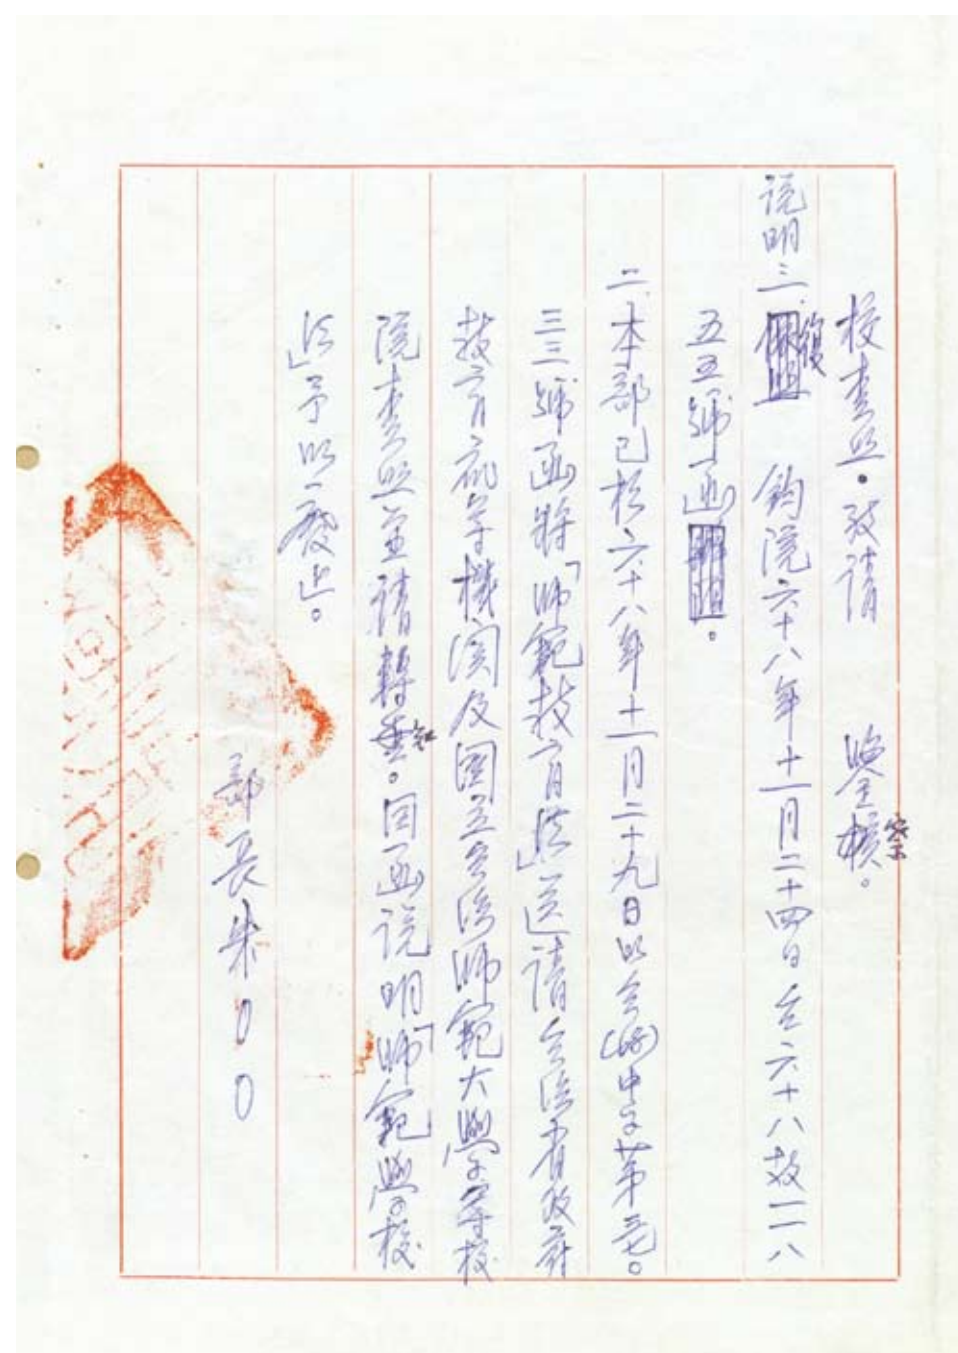 校查照。敬請　鑒核。
察
說明：一、復　鈞院六十八年十一月二十四日台六十八教一一八
五五號函。
二、本部已於六十八年十一月二十九日以台(68)中字第三七〇
三三號函將「師範教育法」送請台灣省政府
教育廳等機関及國立台灣師範大學等校
院查照並請轉知。同函說明「師範學校
法」予以廢止。
部長朱〇〇